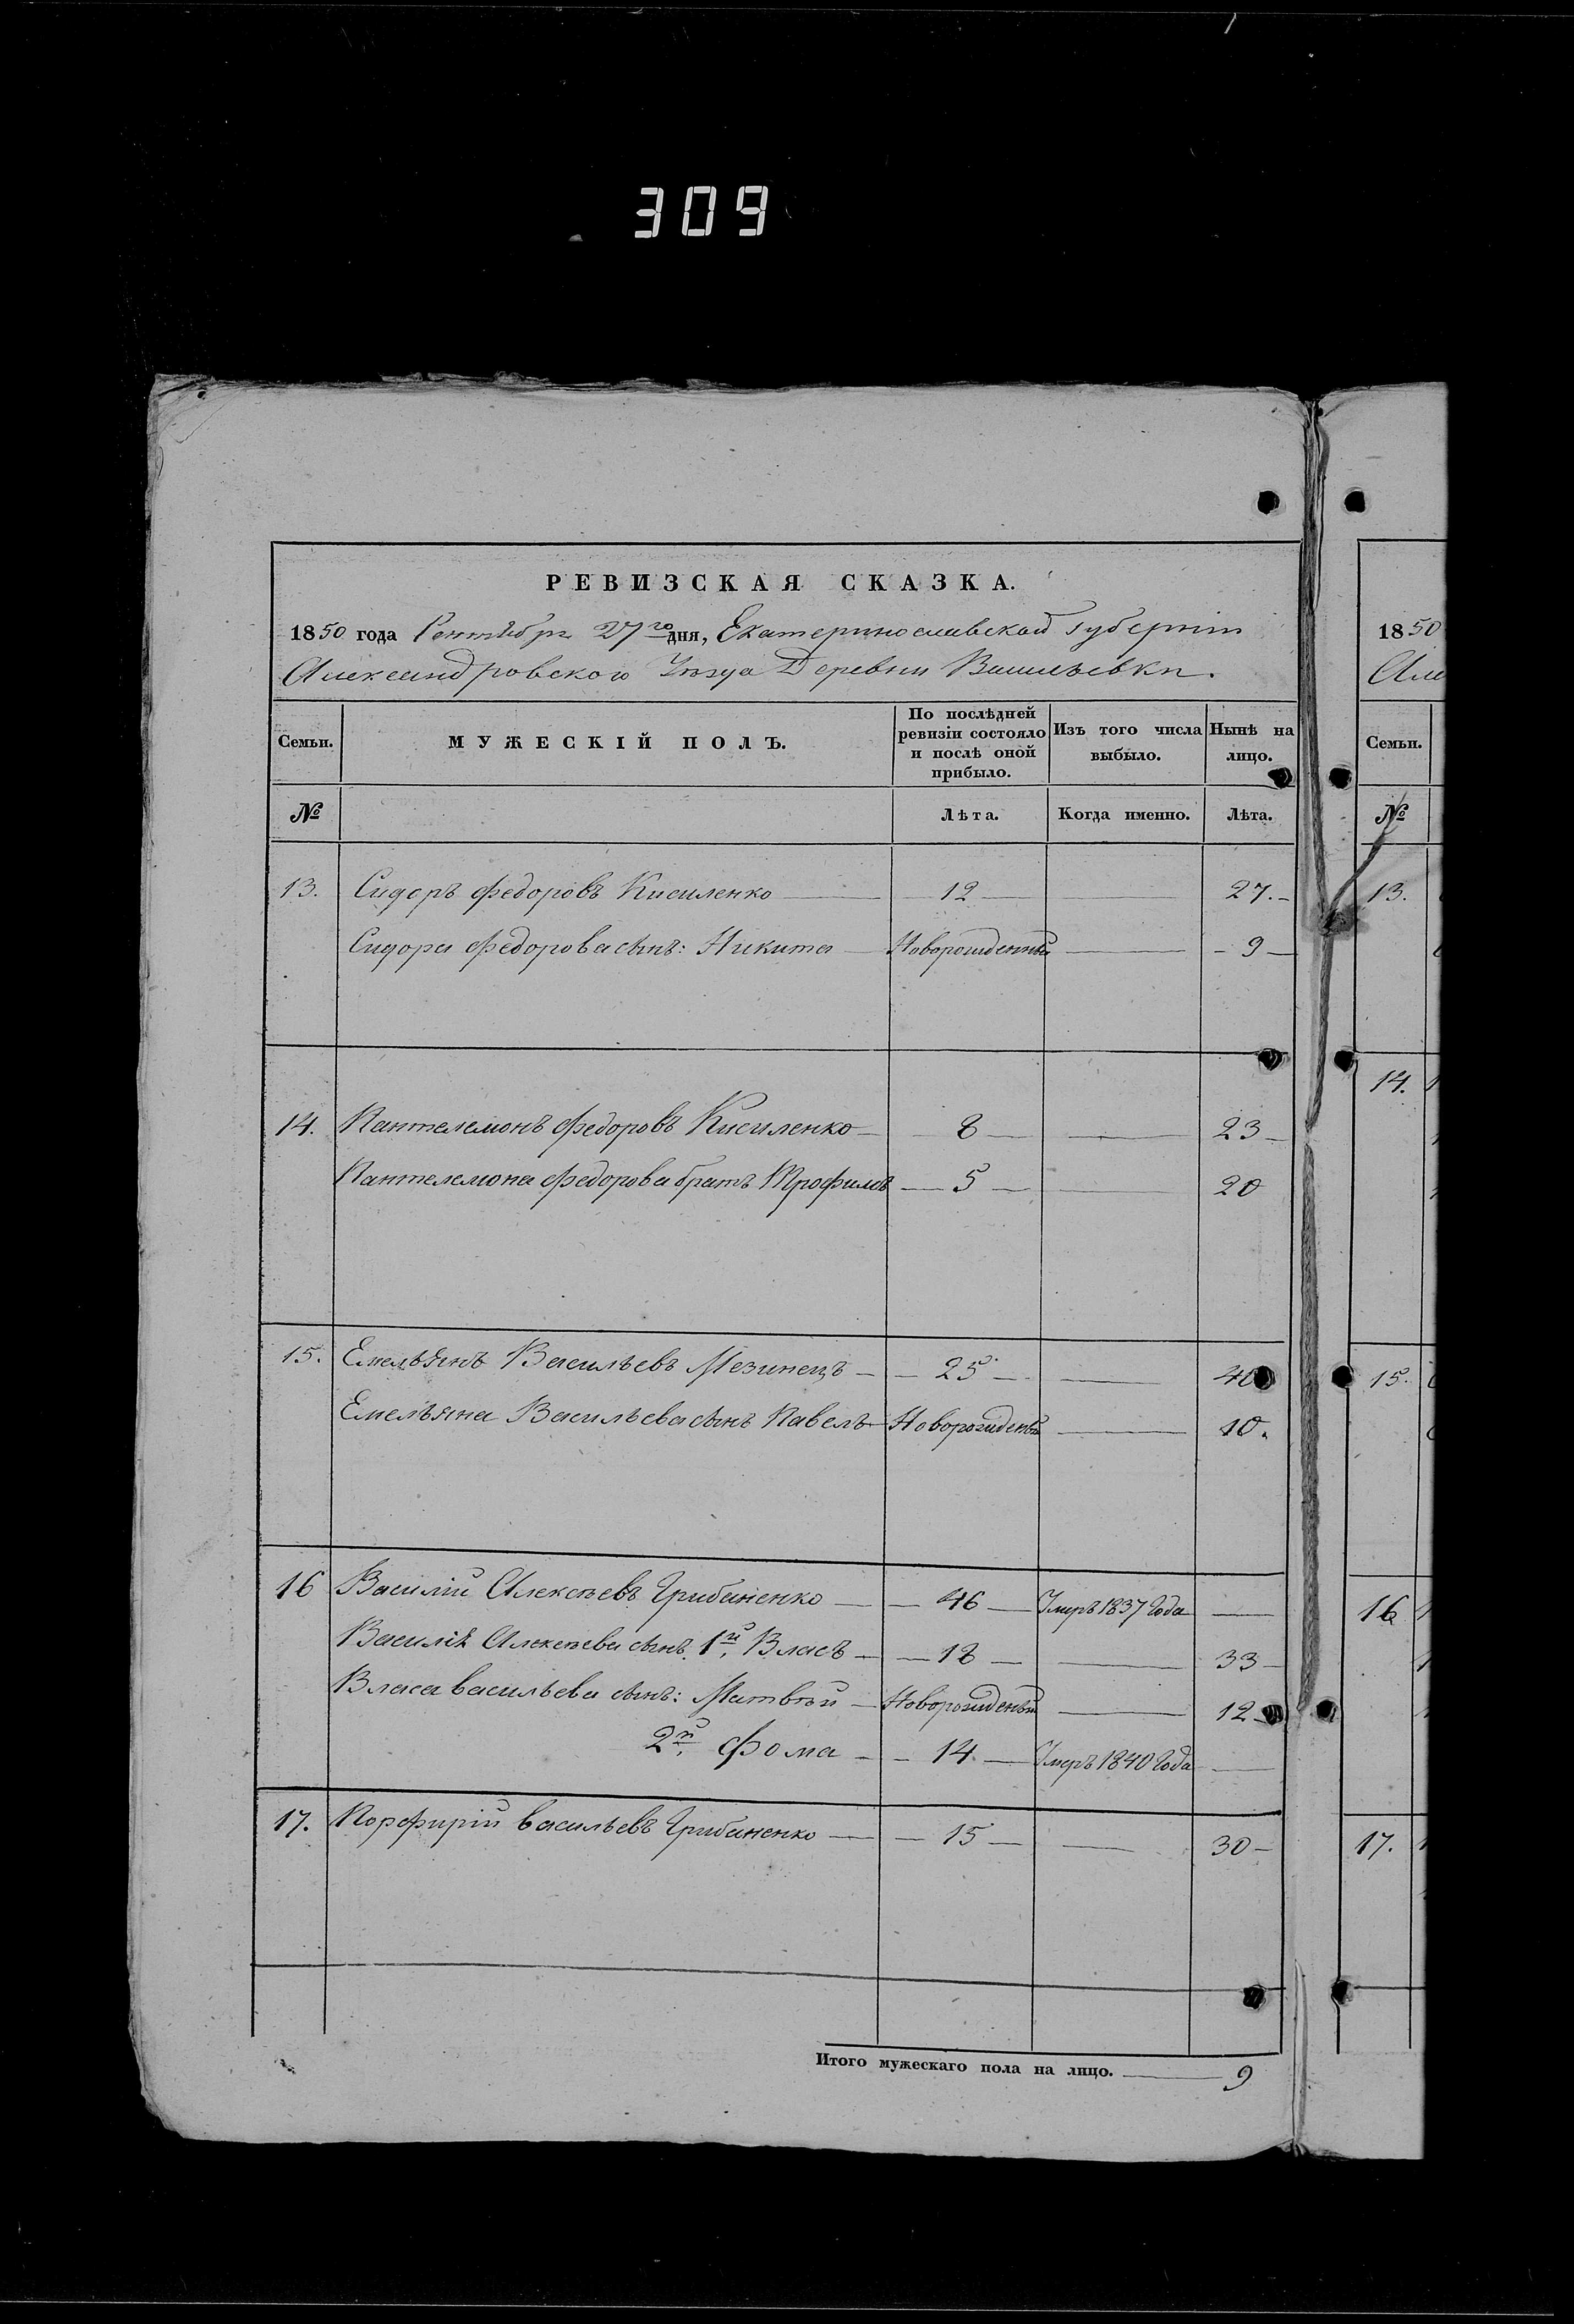 309
РЕВИЗСКАЯ СКАЗКА.
1850 года Сентября 27го дня, Екатеринославской Губерніи
Александровского Уѣзда Деревни Васильевки.
Семьи. МУЖЕСКІЙ ПОЛЪ. По послѣдней ревизіи состояло и послѣ оной прибыло. Изъ того числа выбыло. Нынѣ на лицо.
№ Лѣта. Когда именно. Лѣта.
13. Сидоръ Федоровъ Кисиленко — 12 — — 27. –
Сидора Федорова сынъ: Никита — Новорожденный — – 9 —
14. Пантелемонъ Федоровъ Кисиленко — 8 — — 23 –
Пантелемона Федорова братъ Трофимъ — 5 — — 20
15. Емельянъ Васильевъ Мезинецъ — 25 — — 40
Емельяна Васильева сынъ Павелъ — Новорожденый — 10.
16 Василій Алексѣевъ Грибиненко — 46 — Умръ 1837 Года —
Василія Алексѣева сынъ. 1й, Власъ — 18 — — 33 –
Власа васильева сынъ: Матвѣй — Новорожденый — 12 –
2й, Фома — 14 — Умръ 1840 Года —
17. Порфирій васильевъ Грибиненко — 15 — — 30 –
Итого мужескаго пола на лицо. — 9
1850
Але
Семьи.
№
13.
14.
15.
16
17.